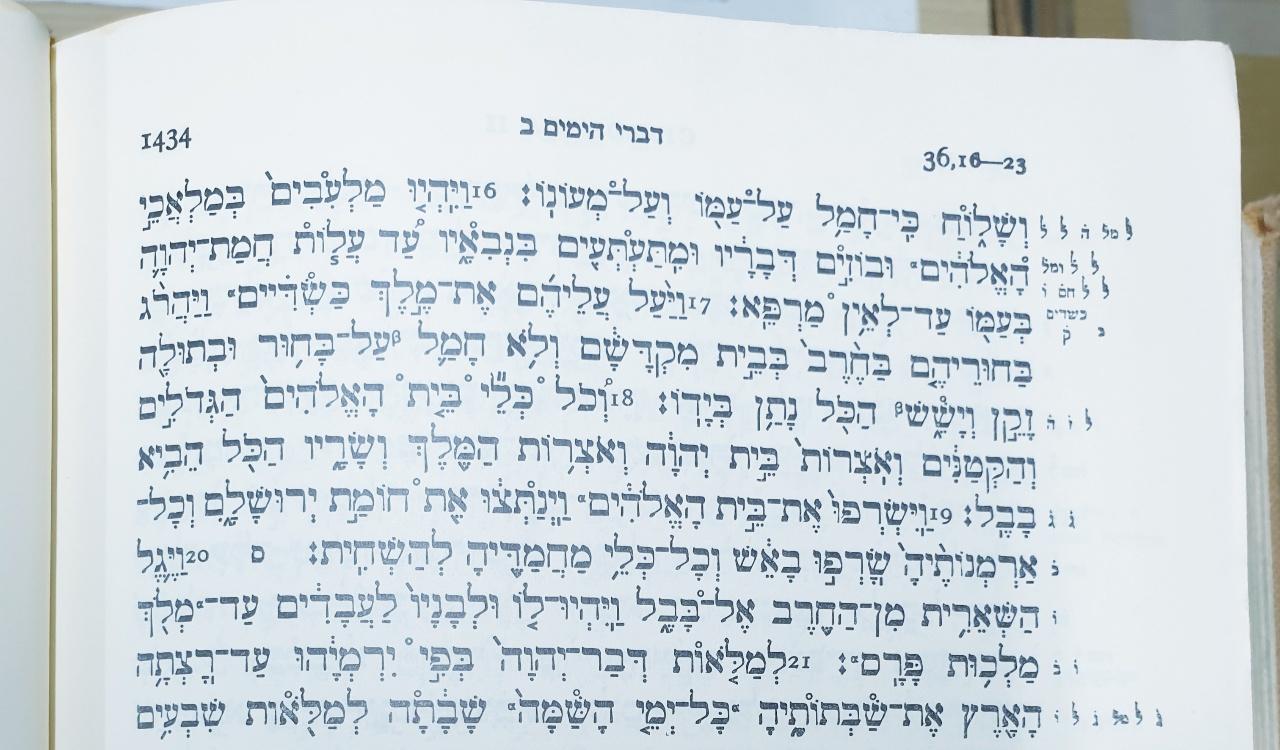 1434 דברי הימים ב 36,16—23
וְשָׁל֑וֹחַ כִּֽי־חָמַ֥ל עַל־עַמּ֖וֹ וְעַל־מְעוֹנֽוֹ׃ 16וַיִּֽהְי֤וּ מַלְעִבִים֙ בְּמַלְאֲכֵ֣י
הָאֱלֹהִ֔ים וּבוֹזִ֣ים דְּבָרָ֔יו וּמִֽתַּעְתְּעִ֖ים בִּנְבִאָ֑יו עַ֠ד עֲל֧וֹת חֲמַת־יְהוָ֛ה
בְּעַמּ֖וֹ עַד־לְאֵ֥ין מַרְפֵּֽא׃ 17וַיַּ֨עַל עֲלֵיהֶ֜ם אֶת־מֶ֣לֶךְ כַּשְׂדִּ֗יים וַיַּהֲרֹ֨ג
בַּחוּרֵיהֶ֤ם בַּחֶ֙רֶב֙ בְּבֵ֣ית מִקְדָּשָׁ֔ם וְלֹ֥א חָמַ֛ל עַל־בָּח֥וּר וּבְתוּלָ֖ה
זָקֵ֣ן וְיָשֵׁ֑שׁ הַכֹּ֖ל נָתַ֥ן בְּיָדֽוֹ׃ 18וְ֠כֹל כְּלֵ֞י בֵּ֤ית הָאֱלֹהִים֙ הַגְּדֹלִ֣ים
וְהַקְּטַנִּ֔ים וְאֹֽצְרוֹת֙ בֵּ֣ית יְהוָ֔ה וְאֹצְר֥וֹת הַמֶּ֖לֶךְ וְשָׂרָ֑יו הַכֹּ֖ל הֵבִ֥יא
בָבֶֽל׃ 19וַֽיִּשְׂרְפוּ֙ אֶת־בֵּ֣ית הָאֱלֹהִ֔ים וַֽיְנַתְּצ֔וּ אֵ֖ת חוֹמַ֣ת יְרוּשָׁלָ֑͏ִם וְכָל־
אַרְמְנוֹתֶ֙יהָ֙ שָׂרְפ֣וּ בָאֵ֔שׁ וְכָל־כְּלֵ֥י מַחֲמַדֶּ֖יהָ לְהַשְׁחִֽית׃ ס 20וַיֶּ֛גֶל
הַשְּׁאֵרִ֥ית מִן־הַחֶ֖רֶב אֶל־בָּבֶ֑ל וַֽיִּהְיוּ־ל֤וֹ וּלְבָנָיו֙ לַעֲבָדִ֔ים עַד־מְלֹ֖ךְ
מַלְכ֥וּת פָּרָֽס׃ 21לְמַלֹּ֤אות דְּבַר־יְהוָה֙ בְּפִ֣י יִרְמְיָ֔הוּ עַד־רָצְתָ֥ה
הָאָ֖רֶץ אֶת־שַׁבְּתוֹתֶ֑יהָ כָּל־יְמֵ֤י הָשַּׁמָּה֙ שָׁבָ֔תָה לְמַלֹּ֖אות שִׁבְעִ֥ים